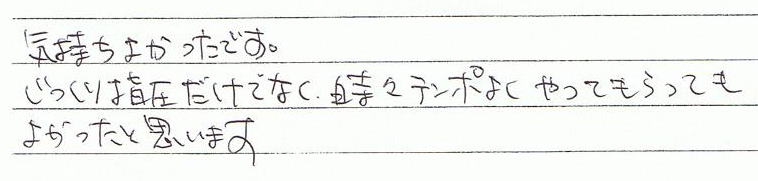 気持ちよかったです。
じっくり指圧だけでなく、時々テンポよくやってもらっても
よかったと思います